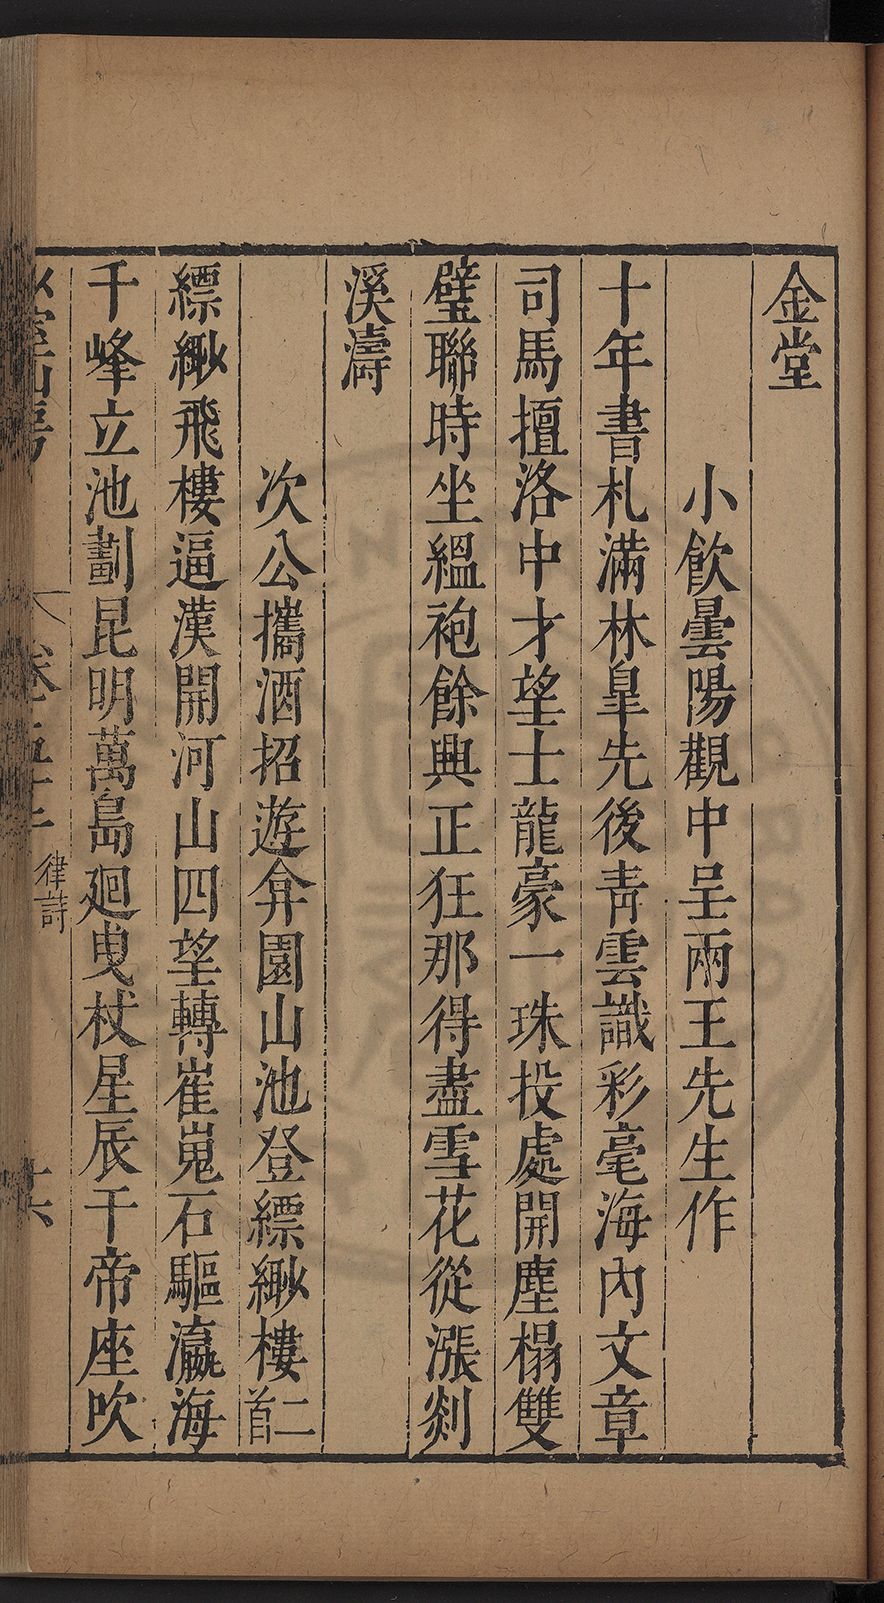 金堂
小飲曇陽觀中呈兩王先生作
十年書札滿林臯先後青雲識彩毫海內文章
司馬擅洛中才望士龍豪一珠投處開塵榻雙
璧聯時坐縕袍餘興正狂那得盡雪花從漲剡
溪濤
次公攜酒招遊弇園山池登縹緲樓二首
縹緲飛樓逼漢開河山四望轉崔嵬石驅瀛海
千峰立池劃昆明萬島廻曳杖星辰干帝座吹
律詩